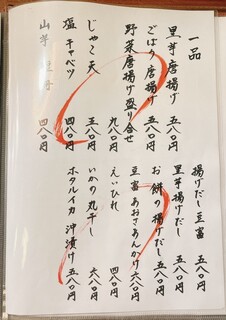 一品
里芋唐揚げ 五八〇円
ごぼう唐揚げ 五八〇円
野菜唐揚げ盛り合せ 九八〇円
じゃこ天 五八〇円
塩キャベツ 四八〇円
山芋 四八〇円
揚げだし豆富 五八〇円
里芋揚げだし 五八〇円
お餅の揚げだし 五八〇円
豆富あおさあんかけ 六八〇円
えいひれ 四八〇円
いかの丸干し 六八〇円
ホタルイカ沖漬け 五八〇円